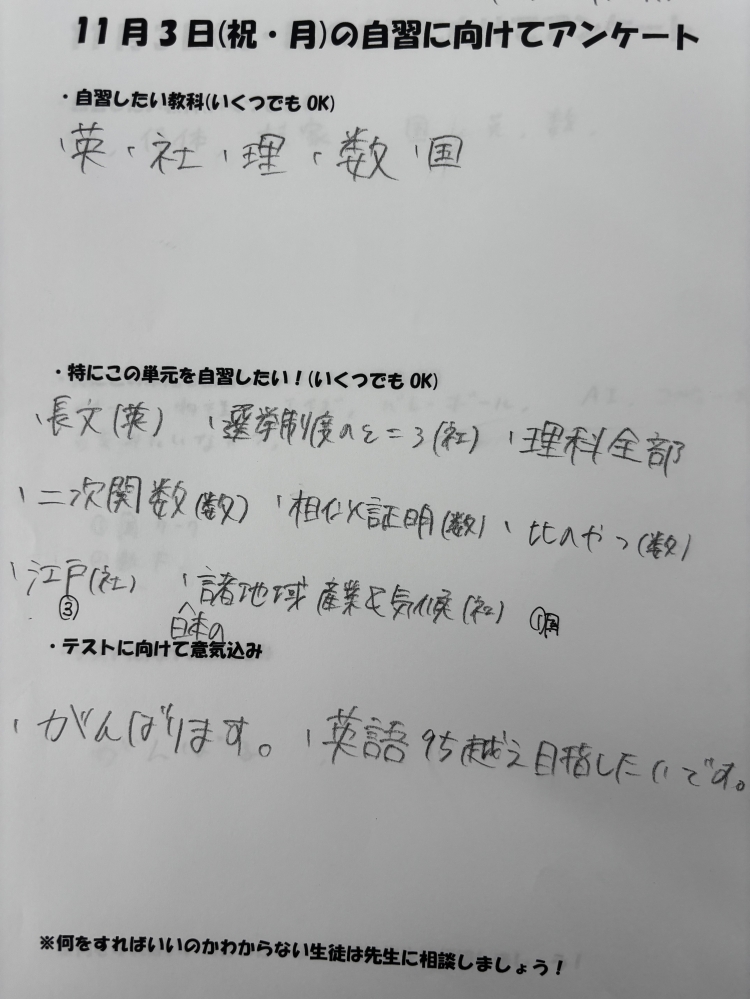 11月3日(祝・月)の自習に向けてアンケート
・自習したい教科(いくつでもOK)
・英・社・理・数・国
・特にこの単元を自習したい！(いくつでもOK)
・長文(英) ・選挙制度のところ(社) ・理科全部
・二次関数(数) ・相似証明(数)・比のやつ(数)
・江戸(社) ・諸地域産業と気候(社)
③ 日本の ①国
・テストに向けて意気込み
・がんばります。 ・英語95越え目指したいです。
※何をすればいいのかわからない生徒は先生に相談しましょう！